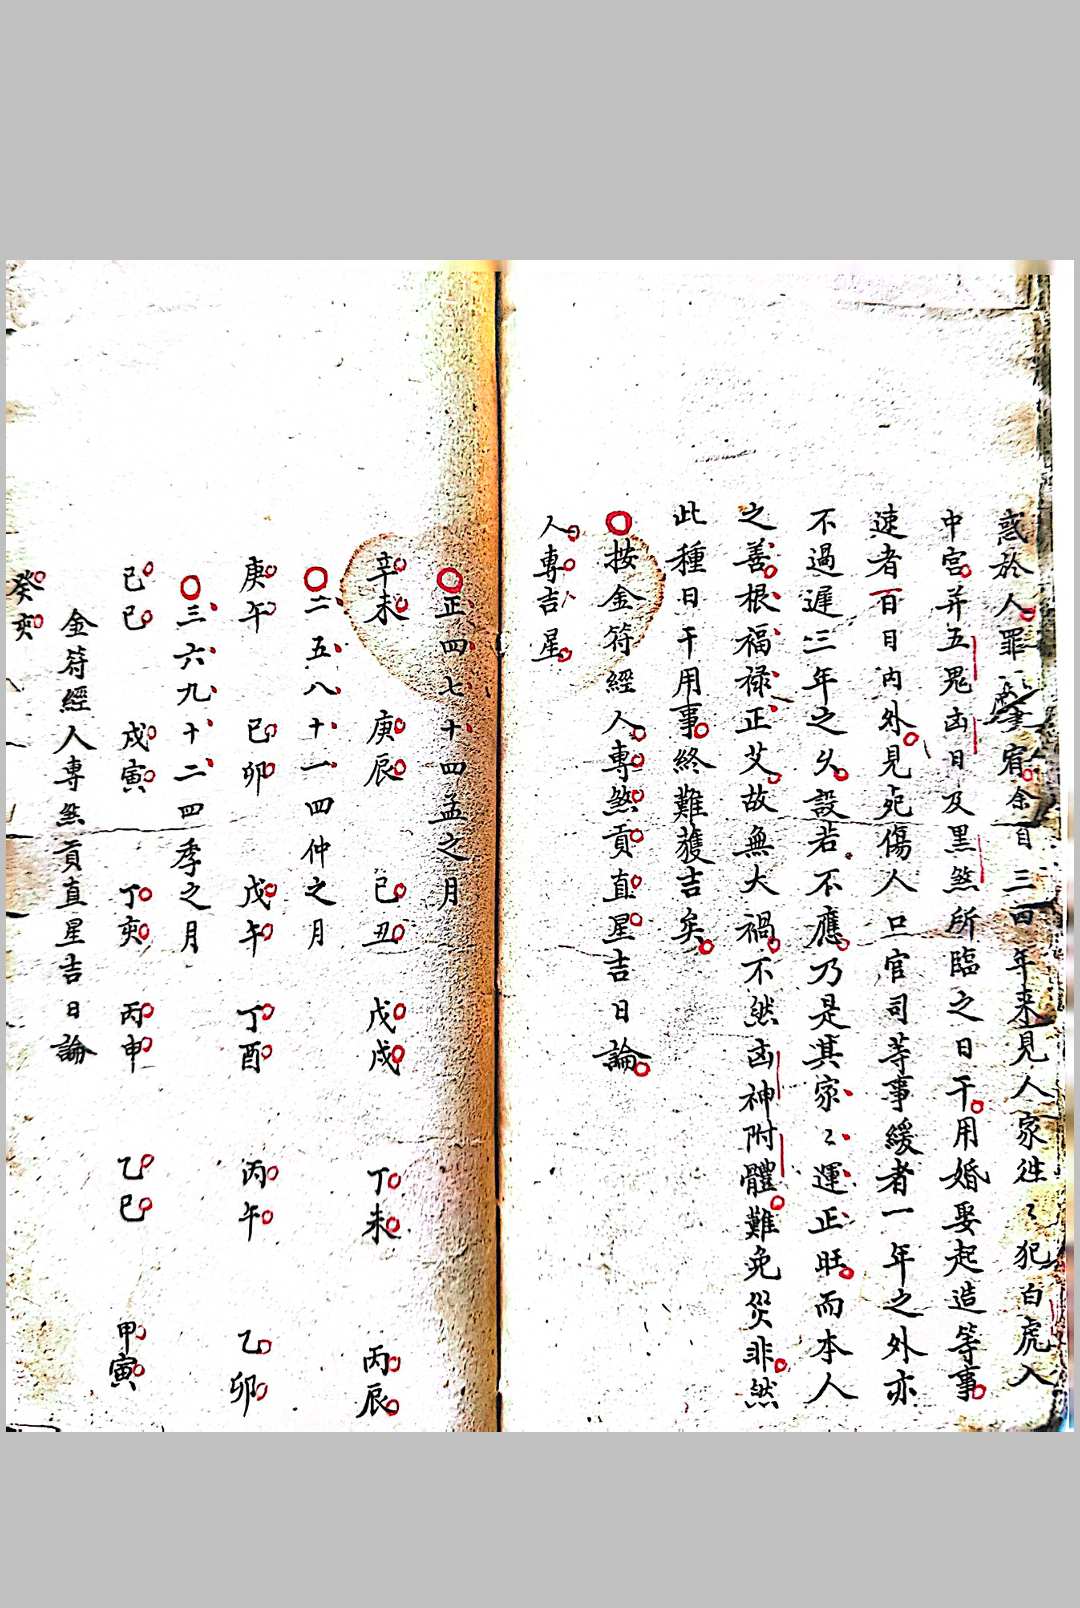 惑於人罪宥余自三四年来見人家徃〻犯白虎入
中宮并五鬼凶日及黒煞所臨之日干用婚娶起造等事
速者百日内外見死傷人口官司等事緩者一年之外亦
不過遲三年之久設若不應乃是其家〻運正旺而本人
之善根福禄正艾故無大禍不然凶神附體難免災非然
此種日干用事終難獲吉矣
按金符經人專煞貢直星吉日論
人專吉星
正四七十四孟之月
辛未 庚辰 己丑 戊戌 丁未 丙辰
二五八十一四仲之月
庚午 己卯 戊午 丁酉 丙午 乙卯
三六九十二四季之月
己巳 戊寅 丁亥 丙申 乙巳 甲寅
金符經人專煞貢直星吉日論
癸亥